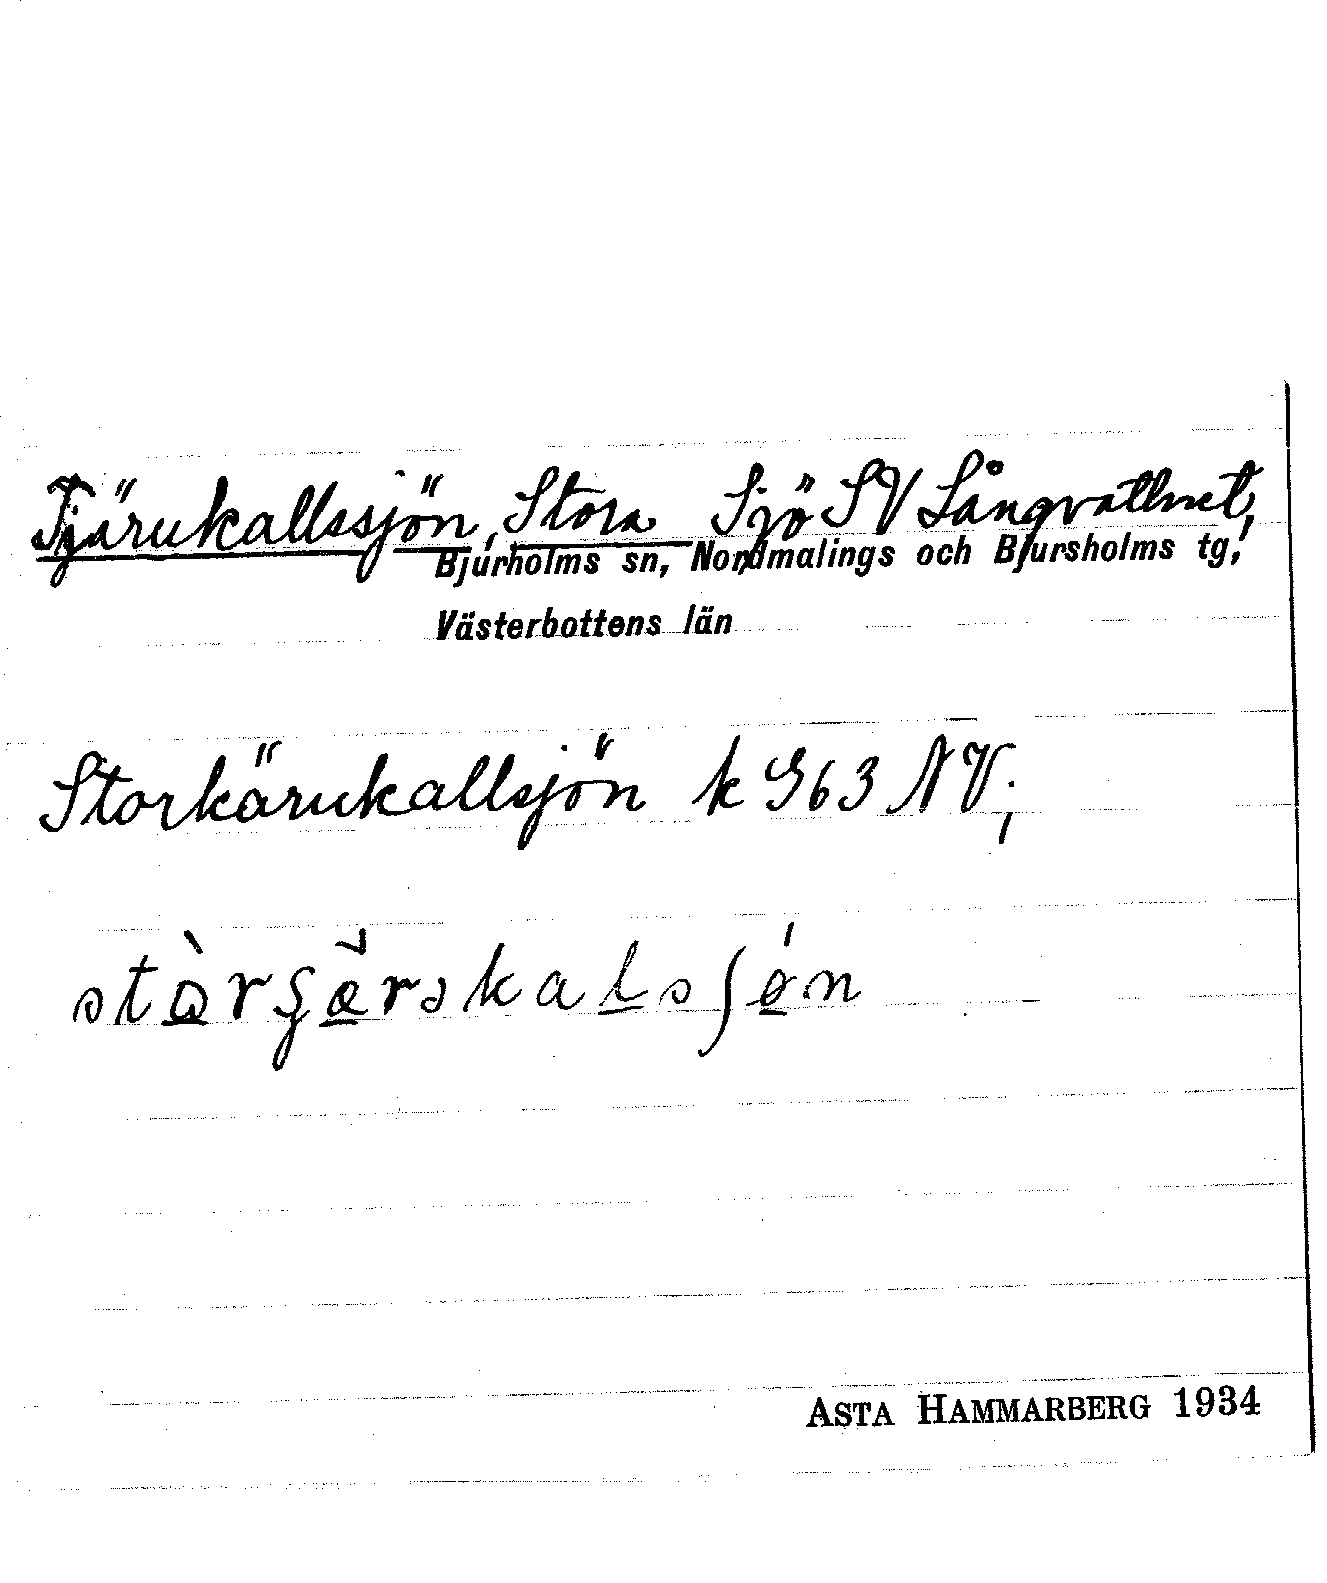 Tjärukallssjön, Stora Sjö SV Långvattnet,
Bjurholms sn, Nordmalings och Bjursholms tg,
Västerbottens län
Storkärukallsjön k 963 NV;
ASTA HAMMARBERG 1934